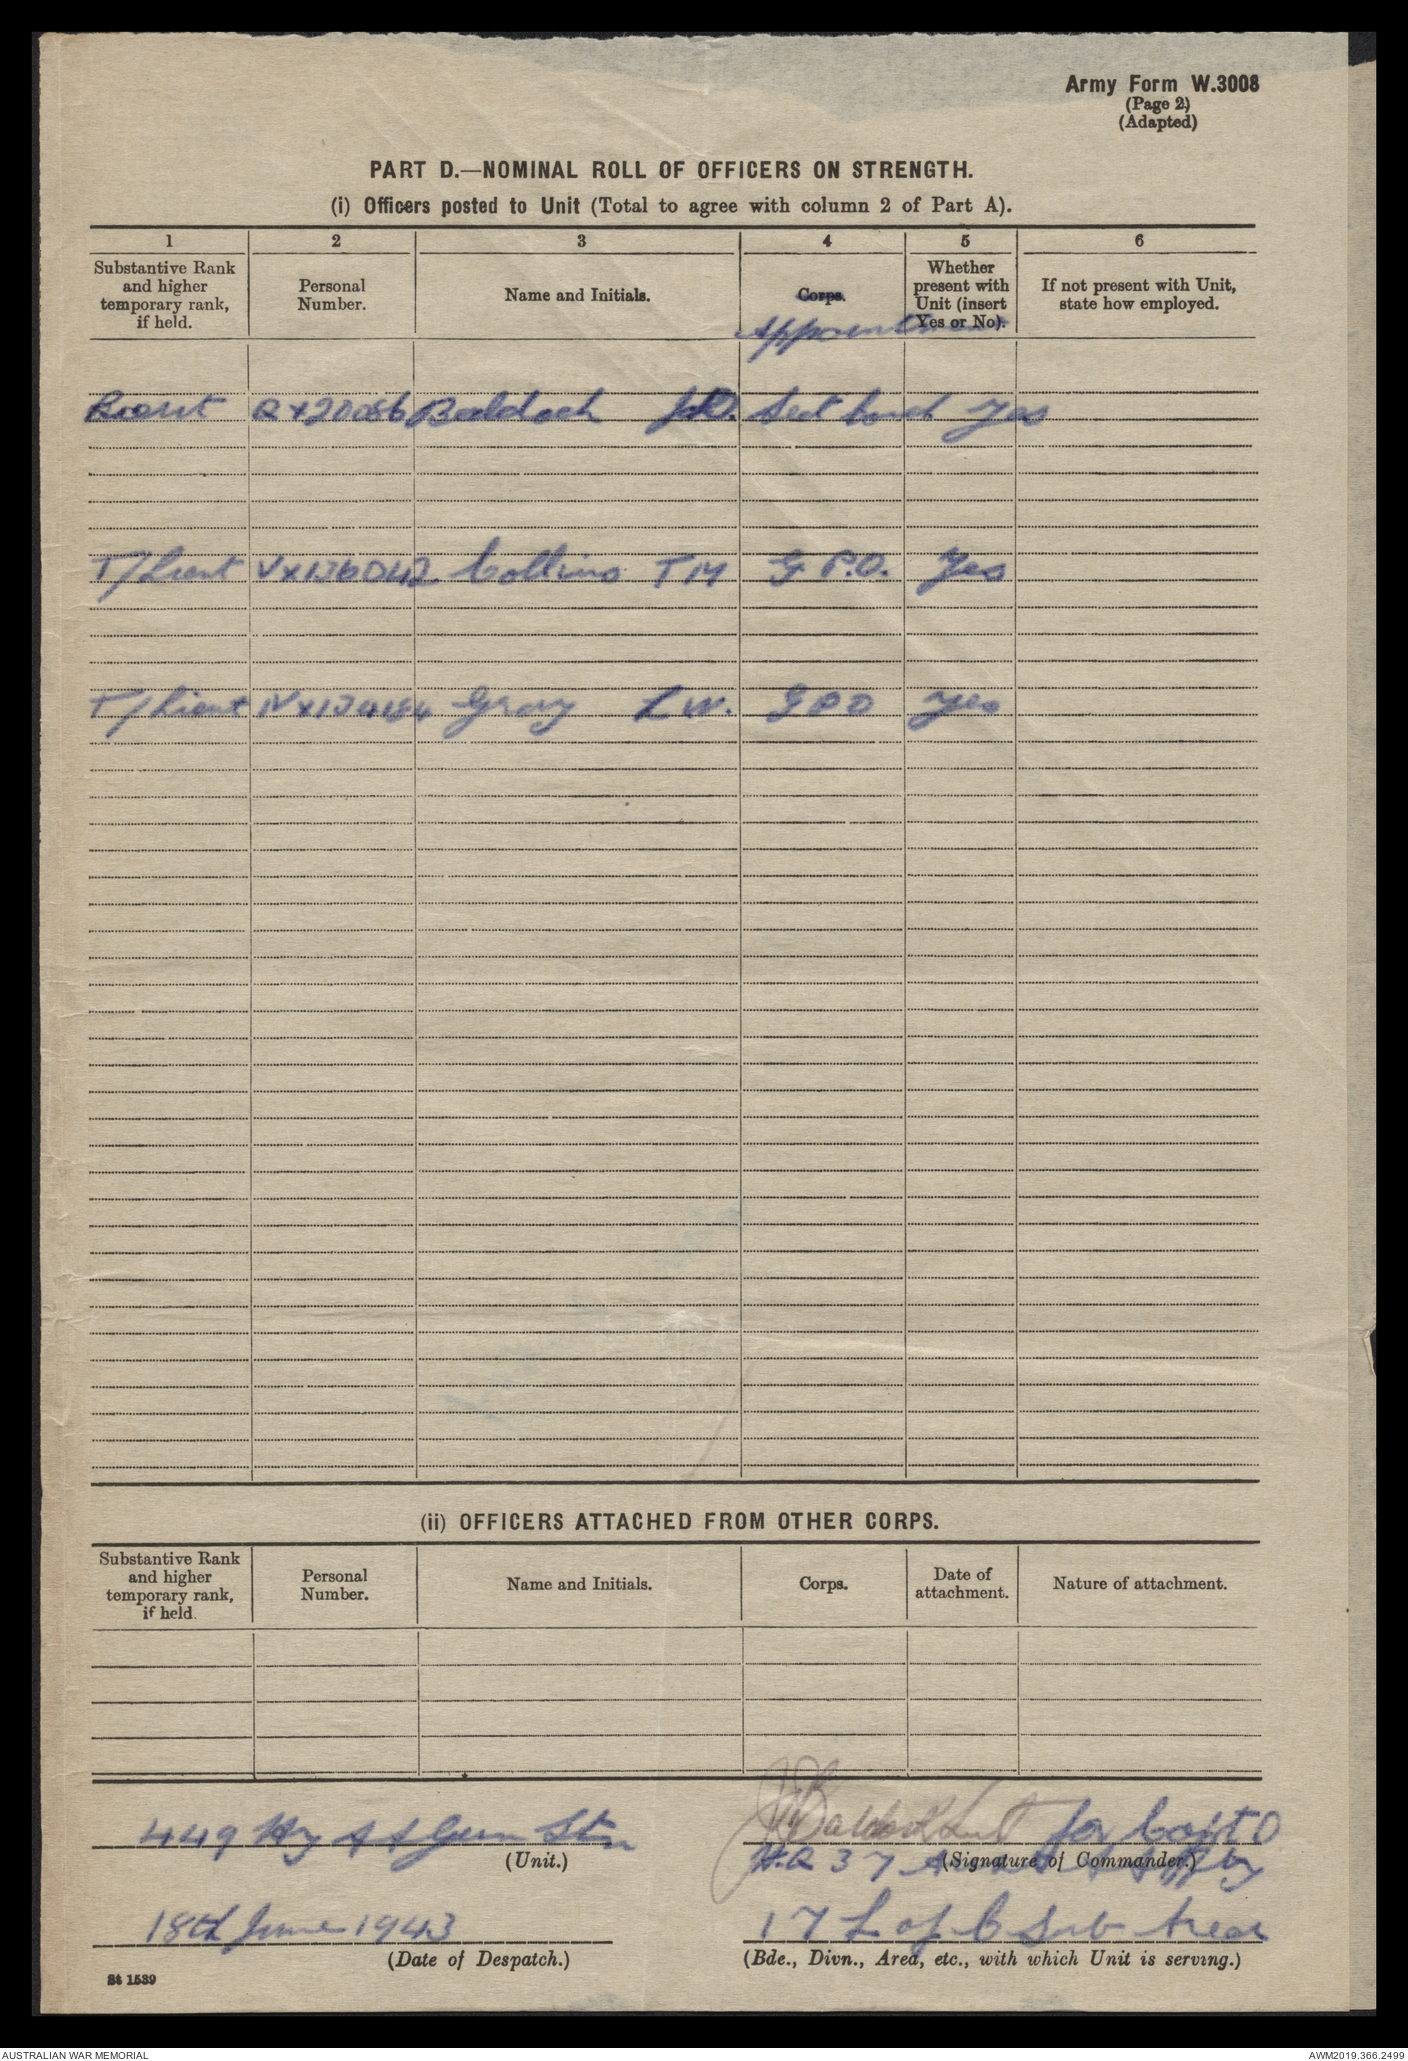 Army Form W.3008
(Page 2)
(Adapted)
PART D.—NOMINAL ROLL OF OFFICERS ON STRENGTH.
(i) Officers posted to Unit (Total to agree with column 2 of Part A).
1 2 3 4 5 6
Substantive Rank and higher temporary rank, if held. Personal Number. Name and Initials. Corps. Whether present with Unit (insert Yes or No). If not present with Unit, state how employed.
Appointment
Lieut QX20086 Baldock J.D. Sect Yes
T/Lieut VX136042 Collins TM G P.O. Yes
T/Lieut Gray L W. G P O Yes
(ii) OFFICERS ATTACHED FROM OTHER CORPS.
Substantive Rank and higher temporary rank, if held. Personal Number. Name and Initials. Corps. Date of attachment. Nature of attachment.
449 Hy A A Gun Stn Baldock Lieut for Capt O
(Unit.) (Signature of Commander.)
H.Q 37
18th June 1943 17 L of C Sub Area
(Date of Despatch.) (Bde., Divn., Area, etc., with which Unit is serving.)
St 1539
AUSTRALIAN WAR MEMORIAL AWM2019.366.2499